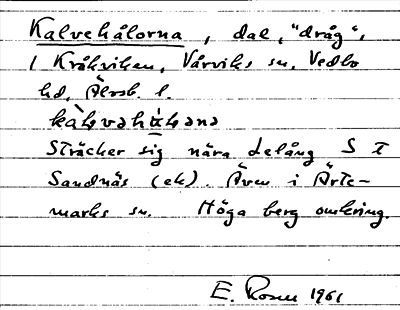 Kalvehålorna, dal, "dråg",
i Kråkviken, Vårviks sn. Vedbo
hd, Älvsb. l.
kàlvəhùləna
Sträcker sig nära Lelång S I
Sandnäs (ek). Även i Ärte-
marks sn. Höga berg omkring.
E. Rosen 1961